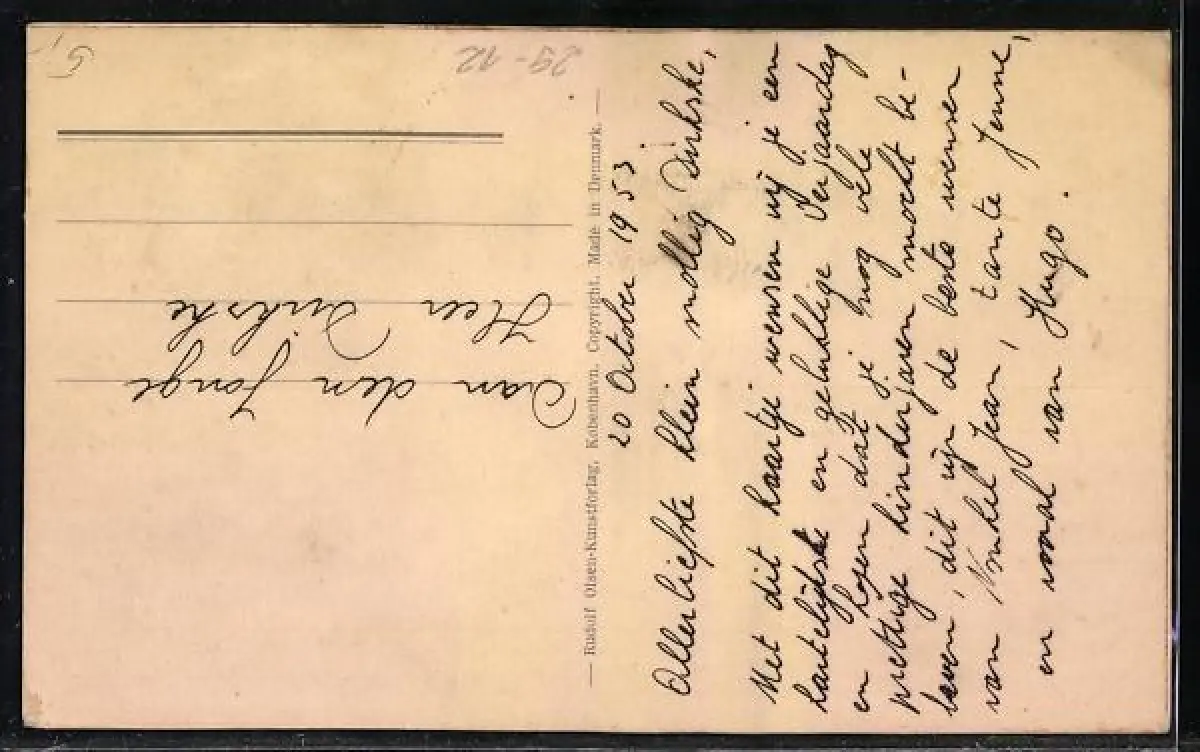 20 October 1953.
Allerliefste klein mollig Dirkske,
Met dit kaartje wensen wij je een
hartelijkste en gelukkige Verjaardag
en hopen dat je nog vele
prettige kinderjaren mocht be-
leven, dit zijn de beste wensen
van Nonkel Jean, tante Jenne,
en vooral van Hugo.
— Rudolf Olsen-Kunstforlag, København. Copyright. Made in Denmark. —
Aan den Jonge
Heer Dirkske
29-12
5,